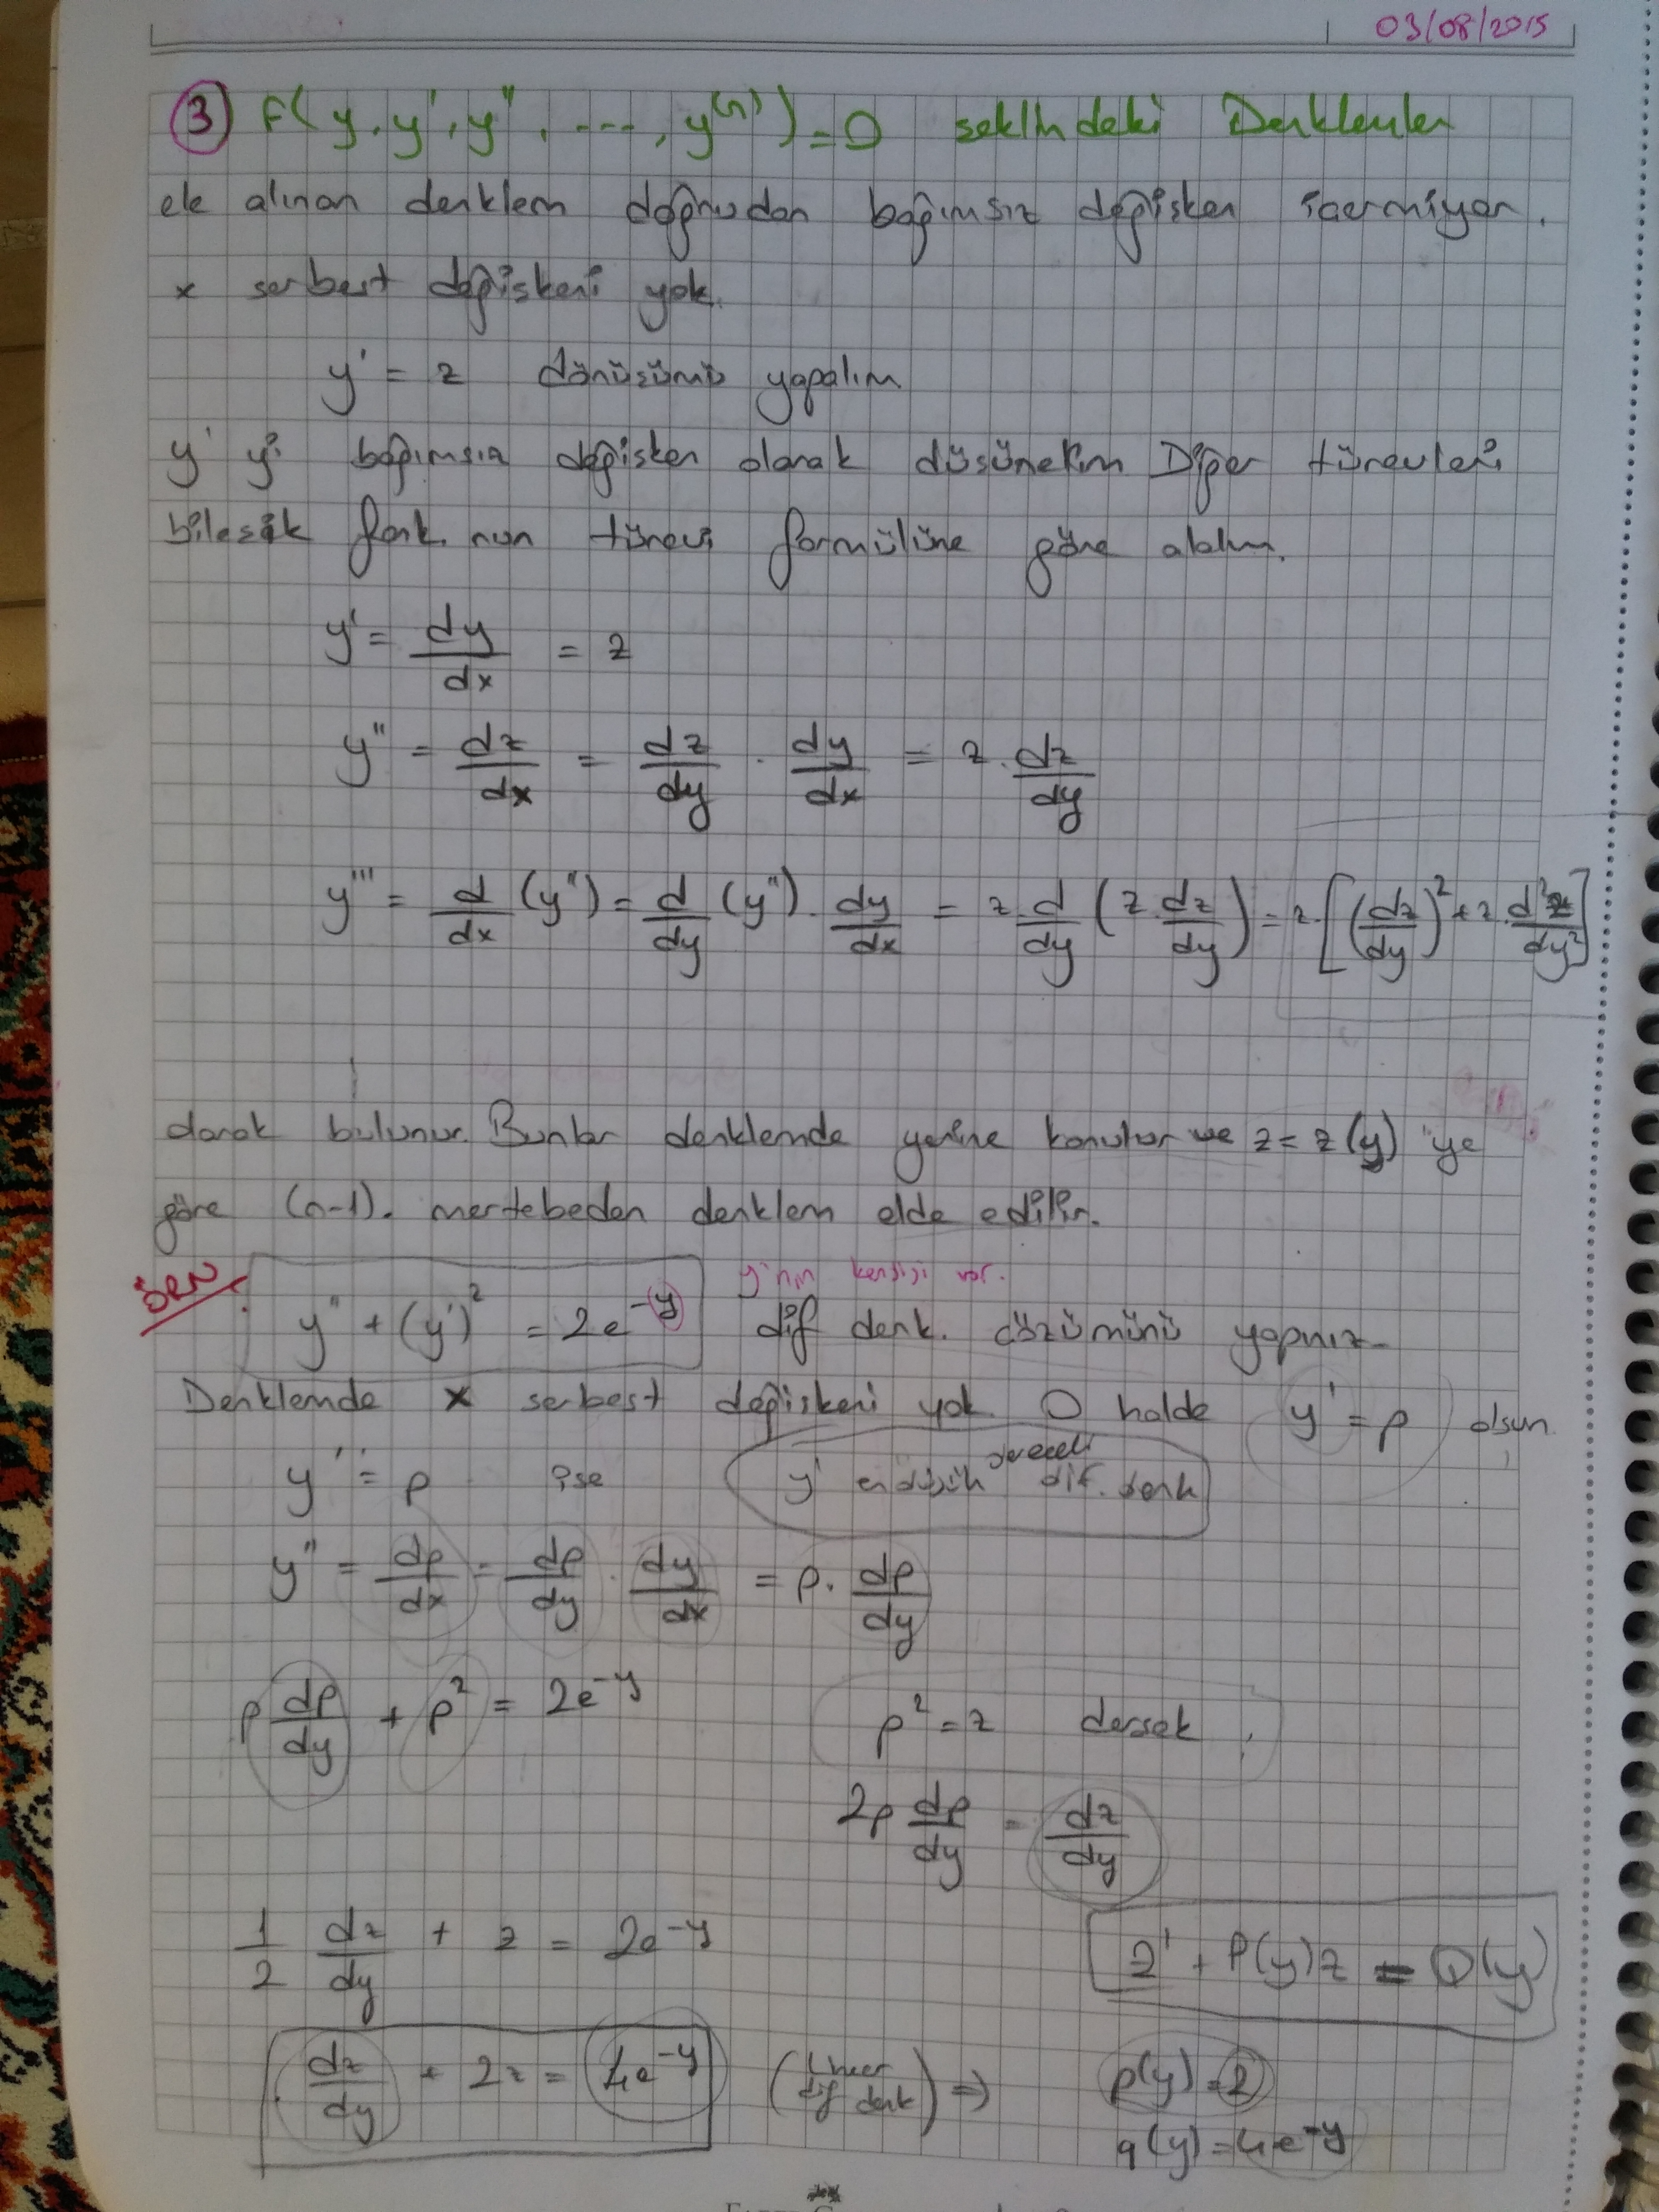 03/08/2015
③ F(y, y', y'', ---, y⁽ⁿ⁾) = 0 seklindeki Denklemler
ele alınan denklem doğrudan bağımsız değişken içermiyor.
x serbest değişkeni yok.
y' = z dönüsümü yapalım
y' yi bağımsız değisken olarak düsünelim Diğer türevleri
bilesik fonk. nun türevi formülüne göre alalım.
y' = dy/dx = z
y'' = dz/dx = dz/dy . dy/dx = z . dz/dy
y''' = d/dx (y'') = d/dy (y'') . dy/dx = z . d/dy (z . dz/dy) = z . [(dz/dy)² + z . d²z/dy²]
olarak bulunur. Bunlar denklemde yerine konulur ve z = z(y) 'ye
göre (n-1). mertebeden denklem elde edilir.
ÖRN y'nin kendisi var.
y'' + (y')² = 2e^(-y) dif denk. çözümünü yapınız
Denklemde x serbest değiskeni yok. O halde y' = p olsun
y' = p ise y' en düşük dereceli dif. denk
y'' = dp/dx = dp/dy . dy/dx = p . dp/dy
p dp/dy + p² = 2e^(-y) p² = z dersek
2p dp/dy = dz/dy
1/2 dz/dy + z = 2e^(-y) z' + P(y)z = Q(y)
dz/dy + 2z = 4e^(-y) (Lineer dif denk) ⇒ p(y) = 2
q(y) = 4e^(-y)